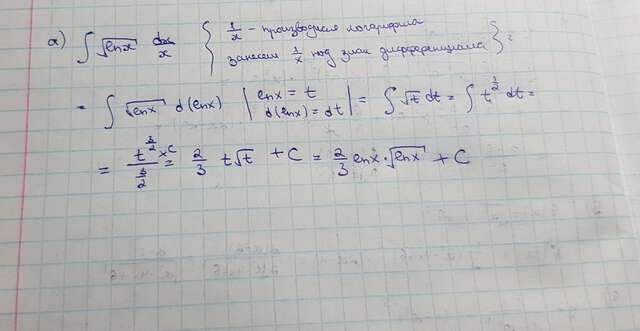 а) ∫ √lnx dx/x { 1/x - производная логарифма
занесем 1/x под знак дифференциала } =
= ∫ √lnx d(lnx) | lnx = t d(lnx) = dt | = ∫ √t dt = ∫ t^(1/2) dt =
= t^(3/2) + C / (3/2) = 2/3 t√t + C = 2/3 lnx · √lnx + C